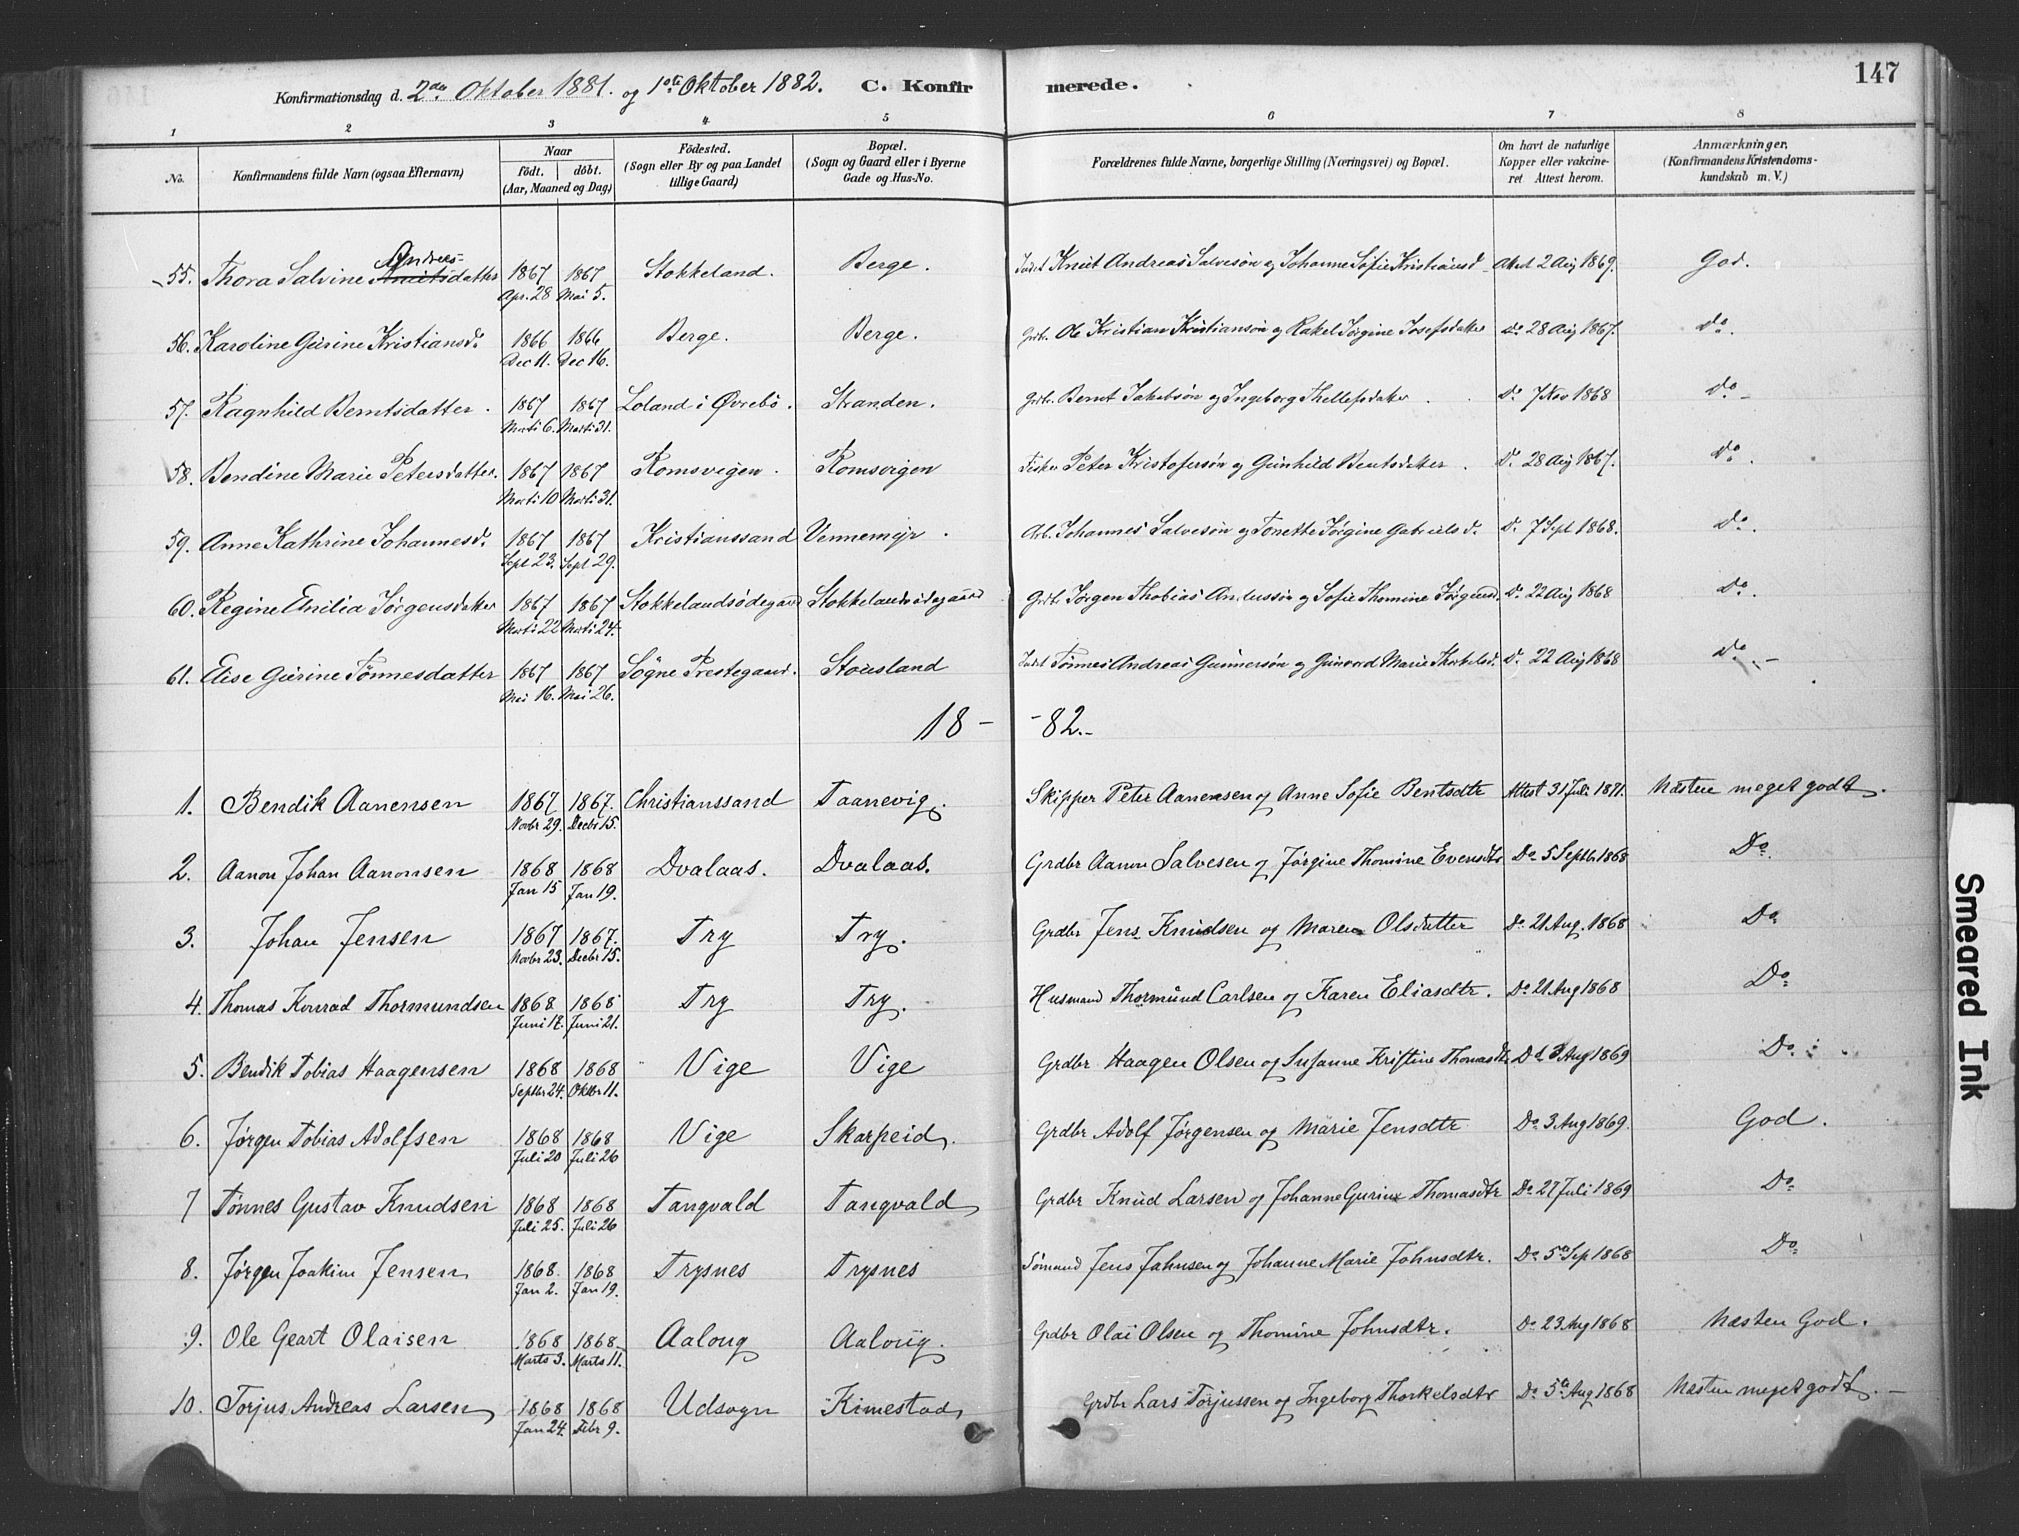 147
Konfirmationsdag d. 2den Oktober 1881. og 1ste Oktober 1882. C. Konfirmerede.
1 2 3 4 5 6 7 8
No. Konfirmandens fulde Navn (ogsaa Efternavn) Naar födt. döbt. (Aar, Maaned og Dag) Födested. (Sogn eller By og paa Landet tillige Gaard) Bopæl. (Sogn og Gaard eller i Byerne Gade og Hus-No. Forældrenes fulde Navne, borgerlige Stilling (Næringsvei) og Bopæl. Om havt de naturlige Kopper eller vakcineret Attest herom. Anmærkninger, (Konfirmandens Kristendomskundskab m. V.)
55. Thora Salvine Andreas- Knutsdatter 1867 Apr. 28 1867 Mai 5. Stokkeland. Berge. Knut Andreas Salvesøn og Johanne Sofie Kristiansd Attest 2 Aug 1869. God.
56. Karoline Gurine Kristiansd. 1866 Dec 11. 1866 Dec 16. Berge. Berge. Grdbr. Ole Kristian Kristiansøn og Rakel Jørgine Josefsdatter Do 28 Aug 1867. Do.
57. Ragnhild Berntsdatter. 1867 Marts 6. 1867 Marts 31. Loland i Øvrebö. Stranden. Grdbr. Bernt Jakobsøn og Ingeborg Thellefsdatter. Do 7 Nov 1868 Do
58. Bendine Marie Petersdatter. 1867 Marts 10 1867 Marts 31. Romsvigen. Romsvigen Fisker Peter Kristofersøn og Gunhild Bentsdatter. Do 28 Aug 1867. Do.
59. Anne Kathrine Johannesd. 1867 Sept 23. 1867 Sept 29. Kristianssand Vennemyr. Arb. Johannes Salvesøn og Tonette Jørgine Gabrielsd. Do 7 Sept 1868. Do.
60. Regine Emilia Jørgensdatter 1867 Marts 22 1867 Marts 24. Stokkelandsödegaard Stokkelandsödegaard Grdbr Jørgen Thobias Anderssøn og Sofie Thomine Jørgensd. Do 22 Aug 1868 Do.
61. Elise Gurine Tønnesdatter 1867 Mai 16. 1867 Mai 26. Sögne Prestegaard. Stousland Tønnes Andreas Gunnersøn og Gunvord Marie Thorkelsd. Do 22 Aug 1868 Do.
18 - - 82.-
1. Bendik Aanensen 1867 Novbr 29. 1867. Decbr 15. Christianssand Taanevig. Skipper Peter Aanensen og Anne Sofie Bentsdtr Attest 31 Juli 1871. Næsten meget godt.
2. Aanon Johan Aanonsen 1868 Jan 15 1868 Jan 19. Dvalaas. Dvalaas. Grdbr Aanon Salvesen og Jørgine Thomine Evensdtr Do 5 Septb. 1868 Do.
3. Johan Jensen 1867 Novbr 23. 1867. Decbr 15. Try Try. Grdbr Jens Knudsen og Maren Olsdatter Do 21 Aug. 1868 Do
4. Thomas Konrad Thormundsen 1868 Juni 17. 1868 Juni 21. Try Try. Husmand Thormund Carlsen og Karen Eliasdtr. Do 21 Aug 1868 Do
5. Bendik Tobias Haagensen 1868 Septbr 24. 1868 Oktbr 11. Vige Vige Grdbr Haagen Olsen og Susanne Kristine Thomasdtr Do 3 Aug 1869 Do.
6. Jørgen Tobias Adolfsen 1868 Juli 20 1868 Juli 26 Vige Skarpeid. Grdbr Adolf Jørgensen og Marie Jensdtr Do 3 Aug 1869. God.
7 Tønnes Gustav Knudsen 1868 Juli 25. 1868 Juli 26 Tangvald Tangvald Grdbr Knud Larsen og Johanne Gurine Thomasdtr Do 27 Juli 1869 Do
8. Jørgen Joakim Jensen 1868. Jan 2. 1868 Jan 19. Trysnes Trysnes Sømand Jens Jahnsen og Johanne Marie Johnsdtr. Do 5te Sep 1868 Do
9. Ole Geart Olaisen 1868 Marts 3. 1868. Marts 11. Aaloug Aaloug. Grdbr Olai Olsen og Thomine Johnsdtr. Do 23 Aug 1868 Næsten God.
10. Torjus Andreas Larsen 1868 Jan 24. 1868 Febr 9. Udsogn Kimestad Grdbr Lars Torjussen og Ingeborg Thorkelsdtr Do 5te Aug 1868 Næsten meget godt.
Smeared Ink